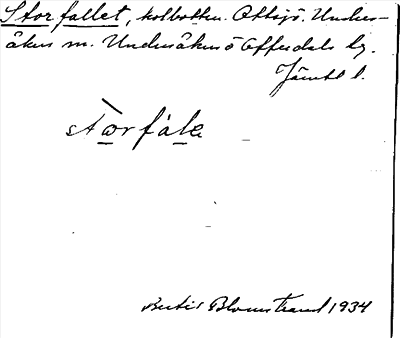 Storfallet, kolbotten. Ottsjö. Unders-
åkers sn. Undersåkers o Offerdals tg.
Jämtl l.
stòrfàle
Bertil Blomstrand 1934